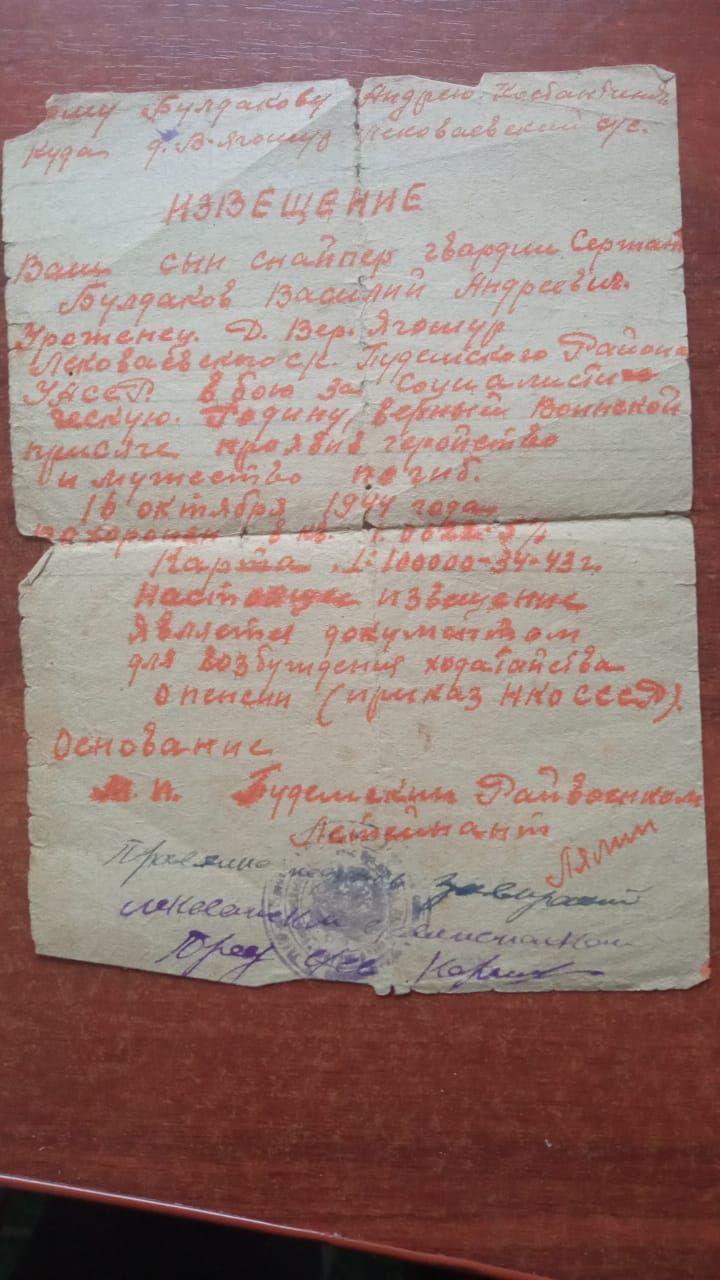 Булдакову Андрею
Куда д. В-Ягошур Лековаевский с/с.
ИЗВЕЩЕНИЕ
Ваш сын снайпер гвардии Сержант
Булдаков Василий Андреевич.
Уроженец. Д. Вер. Ягошур
Лековаевского с/с. Пудемского Района
УАССР. в бою за Социалисти
ческую. Родину, верный Воинской
присяге проявив геройство
и мужество погиб.
16 октября 1944 года
захоронен в кв.
Карта 1:100000-34-43г.
настоящие извещение
является документом
для возбуждения ходатайства
о пенсии (приказ НКОСССР).
Основание
м. п. Пудемским Райвоенком
Летейнант
Лялин
Пред с/с